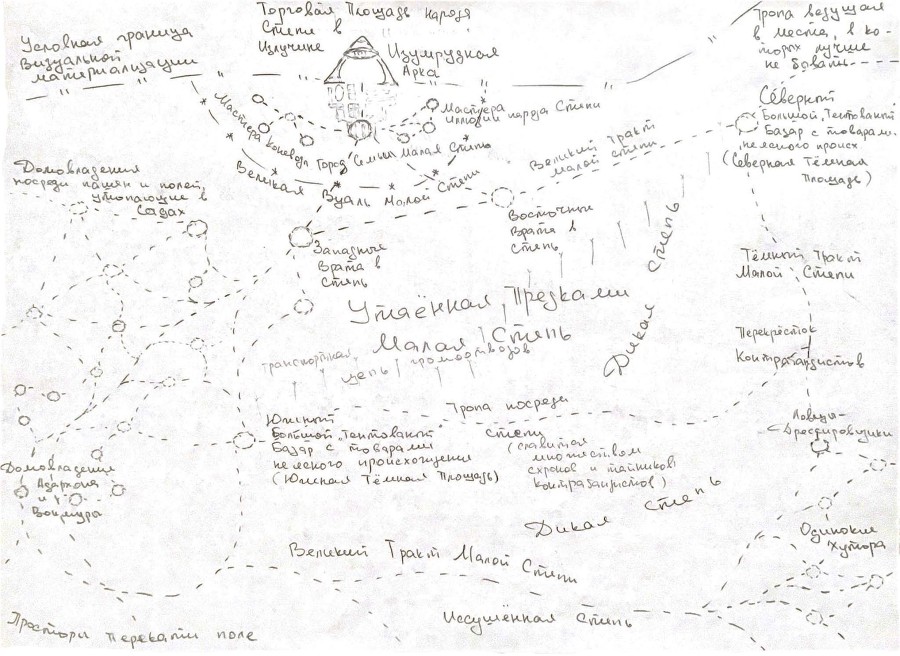 Торговая Площадь народа
Степи в
Излучине
Изумрудная
Арка
Условная граница
Визуальной
материализации
Тропа ведущая
в места, в ко-
торых лучше
не бывать
Мастера
иллюзий народа Степи
Мастера коневоды
Город Семьи Малая Степь
Великая Вуаль Малой Степи
Великий Тракт
Малой степи
Северный
Большой, Тентованый
Базар с товарами
неясного происх.
(Северная Тёмная
Площадь)
Домовладения
посреди пашен и полей,
утопающие в
Садах
Западные
Врата в
Степь
Восточные
Врата в
Степь
Дикая Степь
Утаённая Предками
Малая Степь
Транспортная
цепь громоотводов
Тёмный Тракт
Малой Степи
Перекрёсток
Контрабандистов
Ловцы-
Дрессировщики
Тропа посреди
степи
(славится
множеством
схронов и тайников
контрабандистов)
Южный
Большой, Тентованый
Базар с товарами
неясного происхождения
(Южная Тёмная Площадь)
Домовладения
и
Вокмура
Дикая Степь
Одинокие
Хутора
Великий Тракт Малой Степи
Иссушённая Степь
Просторы Перекати поле